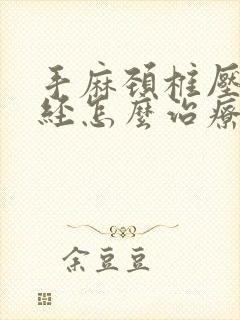 手麻頚椎壓
经怎麼治療
余豆豆